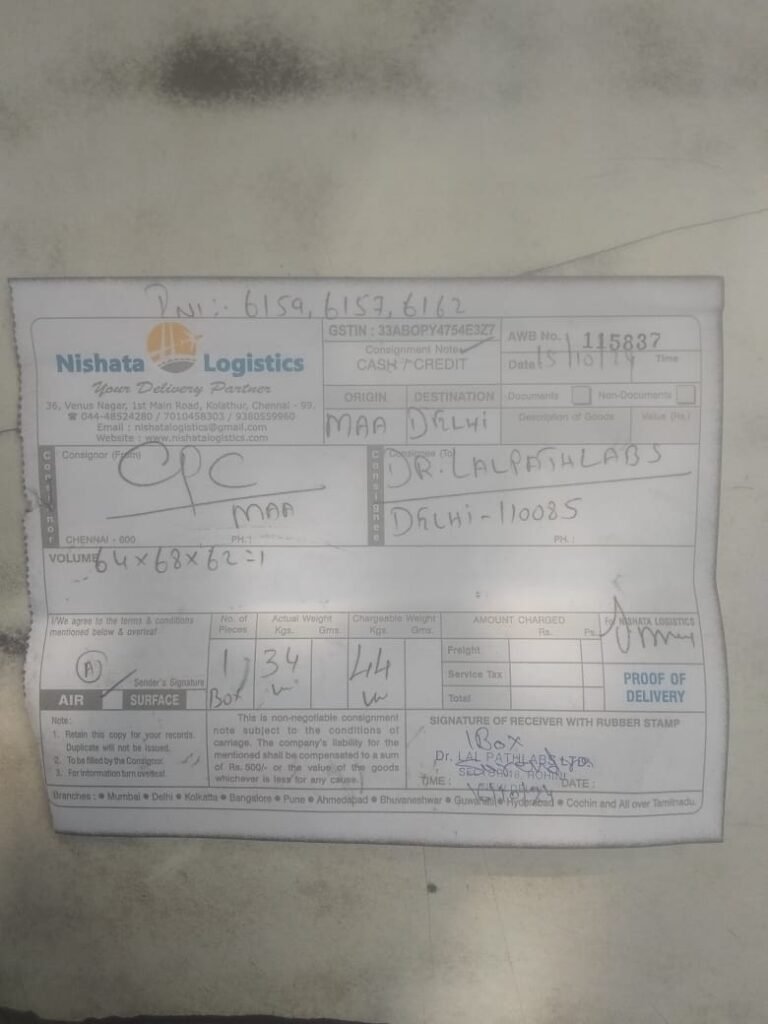 DN1:- 6159, 6157, 6162
Nishata Logistics
Your Delivery Partner
36, Venus Nagar, 1st Main Road, Kolathur, Chennai - 99.
☎ 044-48524280 / 7010458303 / 9380559960
Email : nishatalogistics@gmail.com
Website : www.nishatalogistics.com
GSTIN : 33ABOPY4754E3Z7
Consignment Note
CASH / CREDIT
AWB No. 115837
Date 15/10/24 Time
ORIGIN DESTINATION
MAA DELHI
Documents Non-Documents
Description of Goods Value (Rs.)
Consignor
Consignor (From)
CPC
MAA
CHENNAI - 600 PH.:
Consignee
Consignee (To)
DR. LALPATHLABS
DELHI-110085
PH. :
VOLUME 64x68x62=1
I/We agree to the terms & conditions
mentioned below & overleaf
A
Sender's Signature
AIR SURFACE
No. of Pieces
1
Box
Actual Weight
Kgs. Gms.
34
Chargeable Weight
Kgs. Gms.
44
AMOUNT CHARGED
Rs. Ps.
Freight
Service Tax
Total
For NISHATA LOGISTICS
PROOF OF
DELIVERY
Note:
1. Retain this copy for your records.
Duplicate will not be issued.
2. To be filled by the Consignor.
3. For information turn overleaf.
This is non-negotiable consignment
note subject to the conditions of
carriage. The company's liability for the
mentioned shall be compensated to a sum
of Rs. 500/- or the value of the goods
whichever is less for any cause.
SIGNATURE OF RECEIVER WITH RUBBER STAMP
1Box
Dr. LAL PATHLABS LTD.
ROHINI
TIME : DATE :
16/10/24
Branches : • Mumbai • Delhi • Kolkatta • Bangalore • Pune • Ahmedapad • Bhuvaneshwar • Guwahati • Hyderabad • Cochin and All over Tamilnadu.